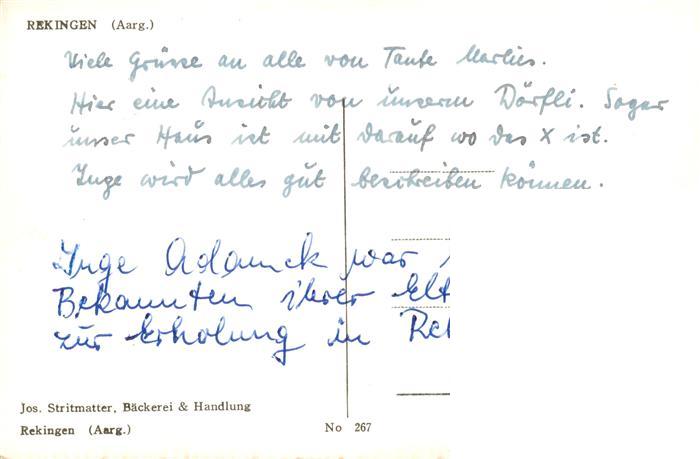 REKINGEN (Aarg.)
Viele Grüsse an alle von Tante Marlies.
Hier eine Ansicht von unserm Dörfli. Sogar
unser Haus ist mit darauf wo das X ist.
Inge wird alles gut beschreiben können.
Inge Adamek war
Bekannten ihrer Elt
zur Erholung in Rek
Jos. Stritmatter, Bäckerei & Handlung
Rekingen (Aarg.)
No 267